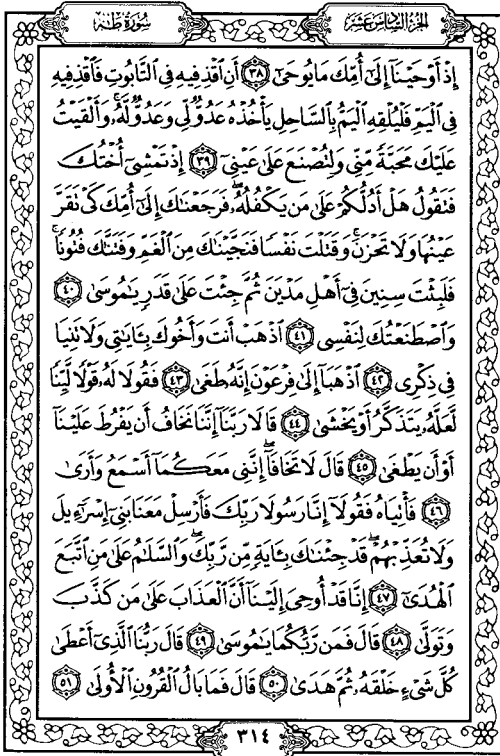 سُورَةُ طٰهٰ
الجُزْءُ السَّادِسُ عَشَرَ
إِذْ أَوْحَيْنَآ إِلَىٰٓ أُمِّكَ مَا يُوحَىٰٓ ٣٨ أَنِ ٱقْذِفِيهِ فِى ٱلتَّابُوتِ فَٱقْذِفِيهِ
فِى ٱلْيَمِّ فَلْيُلْقِهِ ٱلْيَمُّ بِٱلسَّاحِلِ يَأْخُذْهُ عَدُوٌّ لِّى وَعَدُوٌّ لَّهُۥ وَأَلْقَيْتُ
عَلَيْكَ مَحَبَّةً مِّنِّى وَلِتُصْنَعَ عَلَىٰ عَيْنِىٓ ٣٩ إِذْ تَمْشِىٓ أُخْتُكَ
فَتَقُولُ هَلْ أَدُلُّكُمْ عَلَىٰ مَن يَكْفُلُهُۥ فَرَجَعْنَٰكَ إِلَىٰٓ أُمِّكَ كَىْ تَقَرَّ
عَيْنُهَا وَلَا تَحْزَنَ وَقَتَلْتَ نَفْسًا فَنَجَّيْنَٰكَ مِنَ ٱلْغَمِّ وَفَتَنَّٰكَ فُتُونًا
فَلَبِثْتَ سِنِينَ فِىٓ أَهْلِ مَدْيَنَ ثُمَّ جِئْتَ عَلَىٰ قَدَرٍ يَٰمُوسَىٰ ٤٠
وَٱصْطَنَعْتُكَ لِنَفْسِى ٤١ ٱذْهَبْ أَنتَ وَأَخُوكَ بِـَٔايَٰتِى وَلَا تَنِيَا
فِى ذِكْرِى ٤٢ ٱذْهَبَآ إِلَىٰ فِرْعَوْنَ إِنَّهُۥ طَغَىٰ ٤٣ فَقُولَا لَهُۥ قَوْلًا لَّيِّنًا
لَّعَلَّهُۥ يَتَذَكَّرُ أَوْ يَخْشَىٰ ٤٤ قَالَا رَبَّنَآ إِنَّنَا نَخَافُ أَن يَفْرُطَ عَلَيْنَآ
أَوْ أَن يَطْغَىٰ ٤٥ قَالَ لَا تَخَافَآ إِنَّنِى مَعَكُمَآ أَسْمَعُ وَأَرَىٰ
٤٦ فَأْتِيَاهُ فَقُولَآ إِنَّا رَسُولَا رَبِّكَ فَأَرْسِلْ مَعَنَا بَنِىٓ إِسْرَٰٓءِيلَ
وَلَا تُعَذِّبْهُمْ قَدْ جِئْنَٰكَ بِـَٔايَةٍ مِّن رَّبِّكَ وَٱلسَّلَٰمُ عَلَىٰ مَنِ ٱتَّبَعَ
ٱلْهُدَىٰٓ ٤٧ إِنَّا قَدْ أُوحِىَ إِلَيْنَآ أَنَّ ٱلْعَذَابَ عَلَىٰ مَن كَذَّبَ
وَتَوَلَّىٰ ٤٨ قَالَ فَمَن رَّبُّكُمَا يَٰمُوسَىٰ ٤٩ قَالَ رَبُّنَا ٱلَّذِىٓ أَعْطَىٰ
كُلَّ شَىْءٍ خَلْقَهُۥ ثُمَّ هَدَىٰ ٥٠ قَالَ فَمَا بَالُ ٱلْقُرُونِ ٱلْأُولَىٰ ٥١
٣١٤